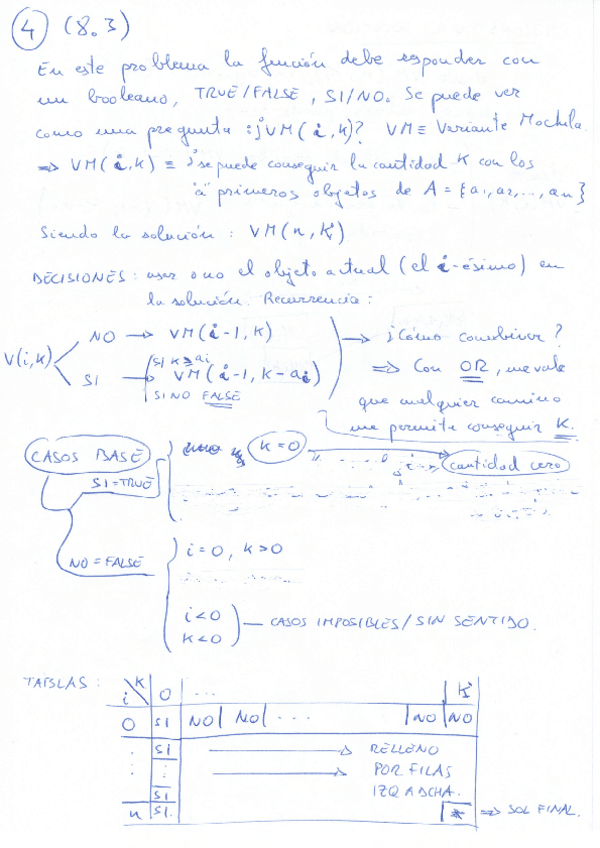 4 (8.3)
En este problema la función debe responder con
un booleano, TRUE/FALSE, SI/NO. Se puede ver
como una pregunta: ¿VM(i,k)? VM≡ Variante Mochila.
⇒ VM(i,k) ≡ ¿se puede conseguir la cantidad K con los
"i" primeros objetos de A = {a1, a2, ..., an}
Siendo la solución: VM(n,K)
DECISIONES: usar o no el objeto actual (el i-ésimo) en
la solución. Recurrencia:
V(i,k)
NO → VM(i-1,k)
SI → SI K≥ai VM(i-1, k-ai)
SINO FALSE
→ ¿Cómo combinar?
⇒ Con OR, me vale
que cualquier camino
me permite conseguir K.
CASOS BASE
SI=TRUE
K=0
cantidad cero
NO=FALSE
i=0, k>0
i<0
k<0
CASOS IMPOSIBLES/SIN SENTIDO.
TABLAS:
i K 0 ... K
0 SI NO NO ... NO NO
. SI → RELLENO
: : → POR FILAS
SI IZQ A DCHA.
n SI. * ⇒ SOL FINAL.